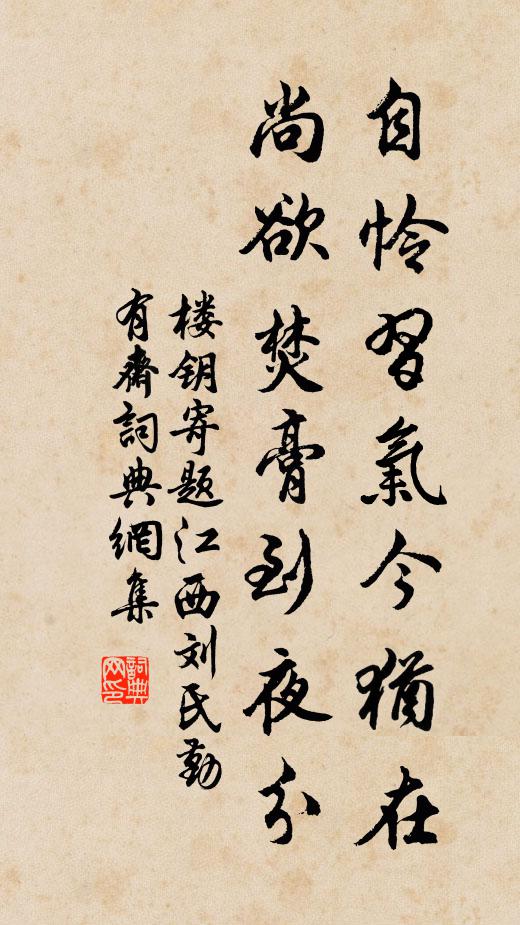 自怜習氣今猶在
尚欲焚膏到夜分
楼钥寄题江西刘氏勤
有齋詞典網集
詞典网印